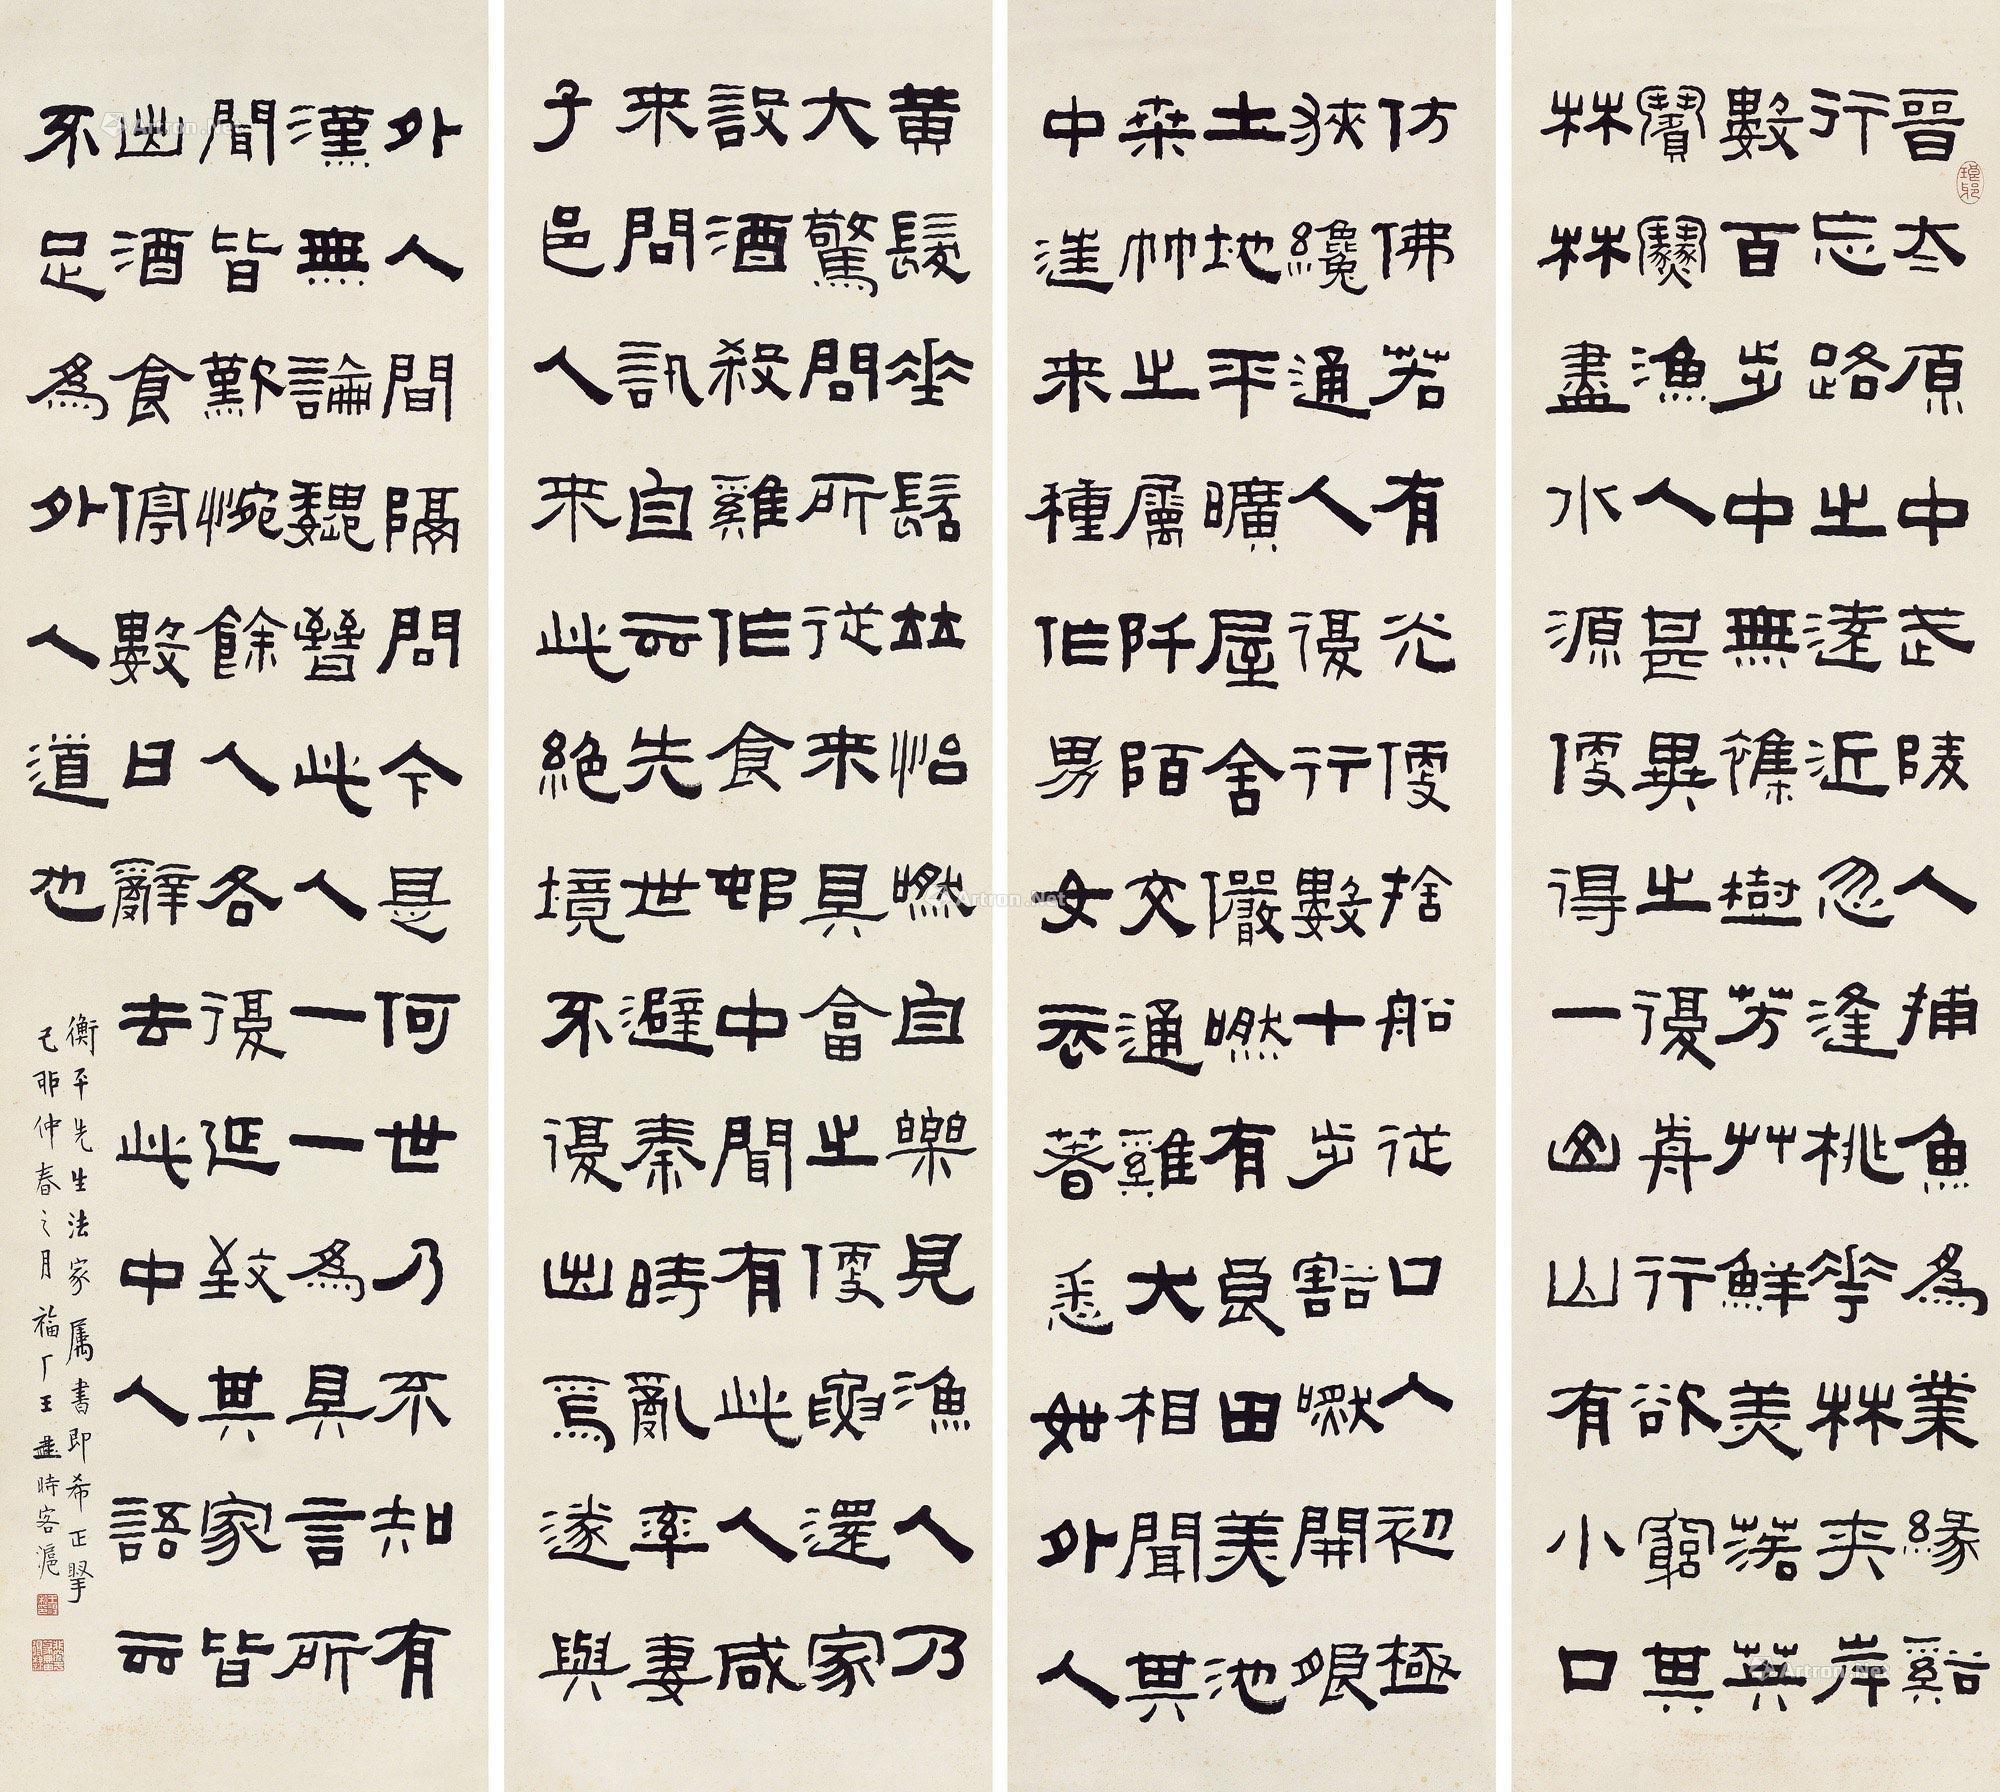 晉太原中武陵人捕魚為業緣谿
行忘路之遠近忽逢桃華林夾岸
數百步中無雜樹芳艸鮮美落英
繽紛漁人甚異之復前行欲窮其
林林盡水源便得一山山有小口
仿佛若有光便捨船從口入初極
狹纔通人復行數十步豁然開朗
土地平曠屋舍儼然有良田美池
桑竹之屬阡陌交通雞犬相聞其
中往來種作男女衣著悉如外人
黃髮垂髫並怡然自樂見漁人乃
大驚問所從來具答之便要還家
設酒殺雞作食邨中聞有此人咸
來問訊自云先世避秦時亂率妻
子邑人來此絕境不復出焉遂與
外人間隔問今是何世乃不知有
漢無論魏晉此人一一為具言所
聞皆歎惋餘人各復延致其家皆
出酒食停數日辭去此中人語云
不足為外人道也
衡平先生法家屬書即希正擘
己卯仲春之月福厂王禔時客滬
琅邪
Artron.Net
Artron.Net
Artron.Net